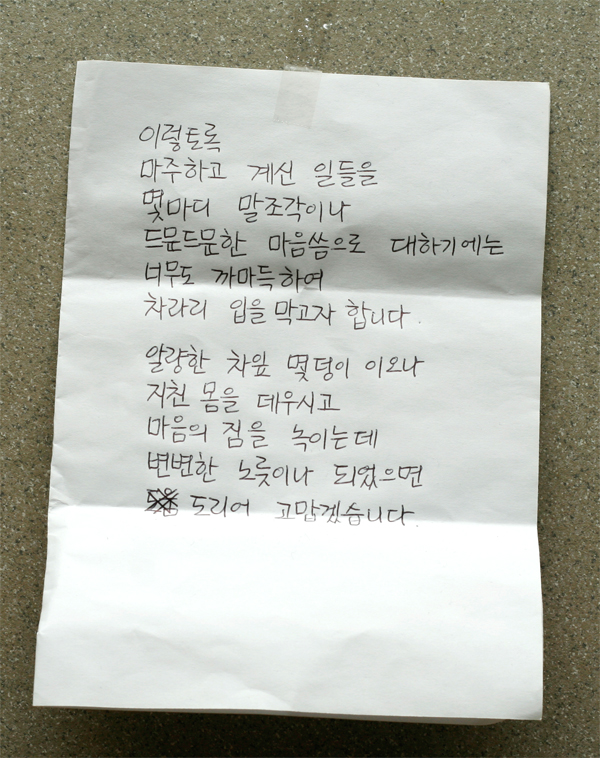 이렇토록
마주하고 계신 일들을
몇마디 말조각이나
드문드문한 마음씀으로 대하기에는
너무도 까마득하여
차라리 입을 막고자 합니다.
알량한 차잎 몇덩이 이오나
지친 몸을 데우시고
마음의 짐을 녹이는데
변변한 노릇이나 되었으면
도리어 고맙겠습니다.